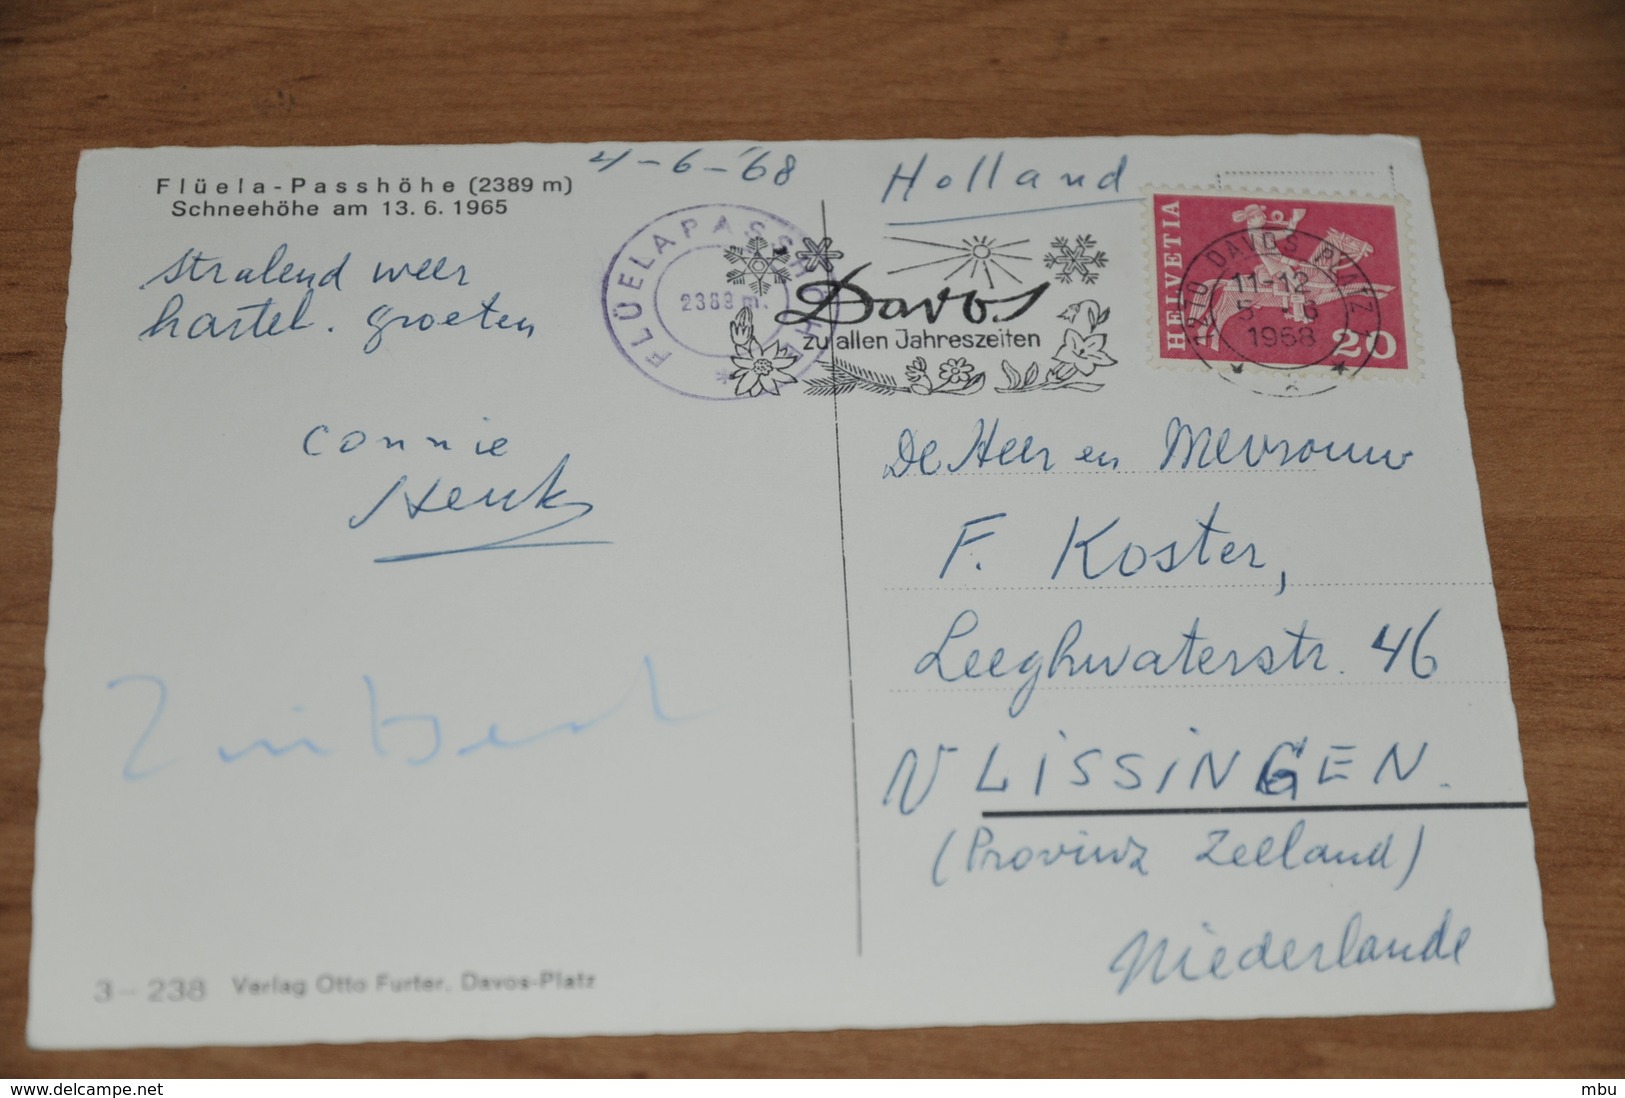 Flüela-Passhöhe (2389 m)
Schneehöhe am 13. 6. 1965
4-6-'68
Holland
stralend weer
hartel. groeten
Connie
Henk
FLÜELAPASSHÖHE
2389 m.
Davos
zu allen Jahreszeiten
HELVETIA
20
7270 DAVOS PLATZ 1
11-12
5.-6
1968
De Heer en Mevrouw
F. Koster,
Leeghwaterstr. 46
VLISSINGEN.
(Provinz Zeeland)
Niederlande
3 - 238 Verlag Otto Furter, Davos-Platz
www.delcampe.net
mbu